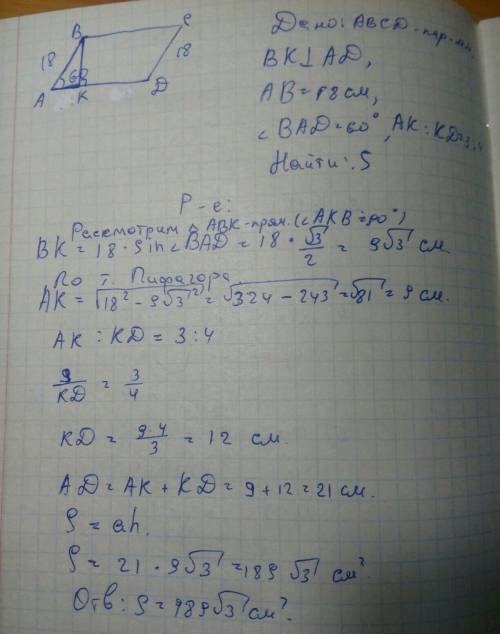 B C
18 18
60
A K D
Дано: ABCD - пар-мм.
BK⊥AD,
AB=18 см,
∠BAD=60°, AK:KD=3:4
Найти: S
Р-е:
Рассмотрим △ABK-прям. (∠AKB=90°)
BK = 18 · sin∠BAD = 18 · √3/2 = 9√3 см
По т. Пифагора
AK = √(18² - 9√3²) = √(324 - 243) = √81 = 9 см.
AK : KD = 3:4
9/KD = 3/4
KD = 9·4/3 = 12 см.
AD = AK + KD = 9 + 12 = 21 см.
S = ah.
S = 21 · 9√3 = 189 √3 см².
Отв: S = 989√3 см².